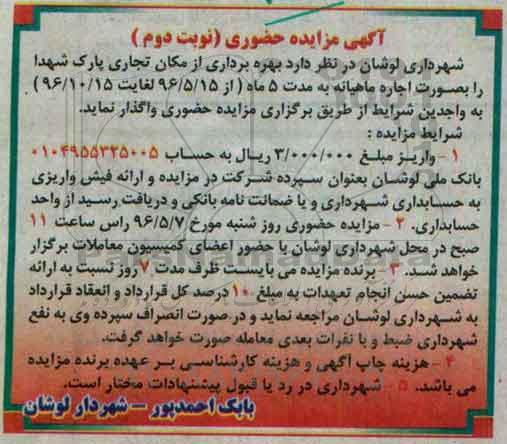 آگهی مزایده حضوری (نوبت دوم)
شهرداری لوشان در نظر دارد بهره برداری از مکان تجاری پارک شهدا
را بصورت اجاره ماهیانه به مدت ۵ ماه ( از ۹۶/۵/۱۵ لغایت ۹۶/۱۰/۱۵ )
به واجدین شرایط از طریق برگزاری مزایده حضوری واگذار نماید.
شرایط مزایده :
۱ - واریز مبلغ ۳/۰۰۰/۰۰۰ ریال به حساب ۰۱۰۴۹۵۵۳۲۵۰۰۵
بانک ملی لوشان بعنوان سپرده شرکت در مزایده و ارائه فیش واریزی
به حسابداری شهرداری و یا ضمانت نامه بانکی و دریافت رسید از واحد
حسابداری. ۲ - مزایده حضوری روز شنبه مورخ ۹۶/۵/۷ راس ساعت ۱۱
صبح در محل شهرداری لوشان با حضور اعضای کمیسیون معاملات برگزار
خواهد شد. ۳ - برنده مزایده می بایست ظرف مدت ۷ روز نسبت به ارائه
تضمین حسن انجام تعهدات به مبلغ ۱۰ درصد کل قرارداد و انعقاد قرارداد
به شهرداری لوشان مراجعه نماید و در صورت انصراف سپرده وی به نفع
شهرداری ضبط و با نفرات بعدی معامله صورت خواهد گرفت.
۴ - هزینه چاپ آگهی و هزینه کارشناسی بر عهده برنده مزایده
می باشد. ۵ - شهرداری در رد یا قبول پیشنهادات مختار است.
بابک احمدپور - شهردار لوشان